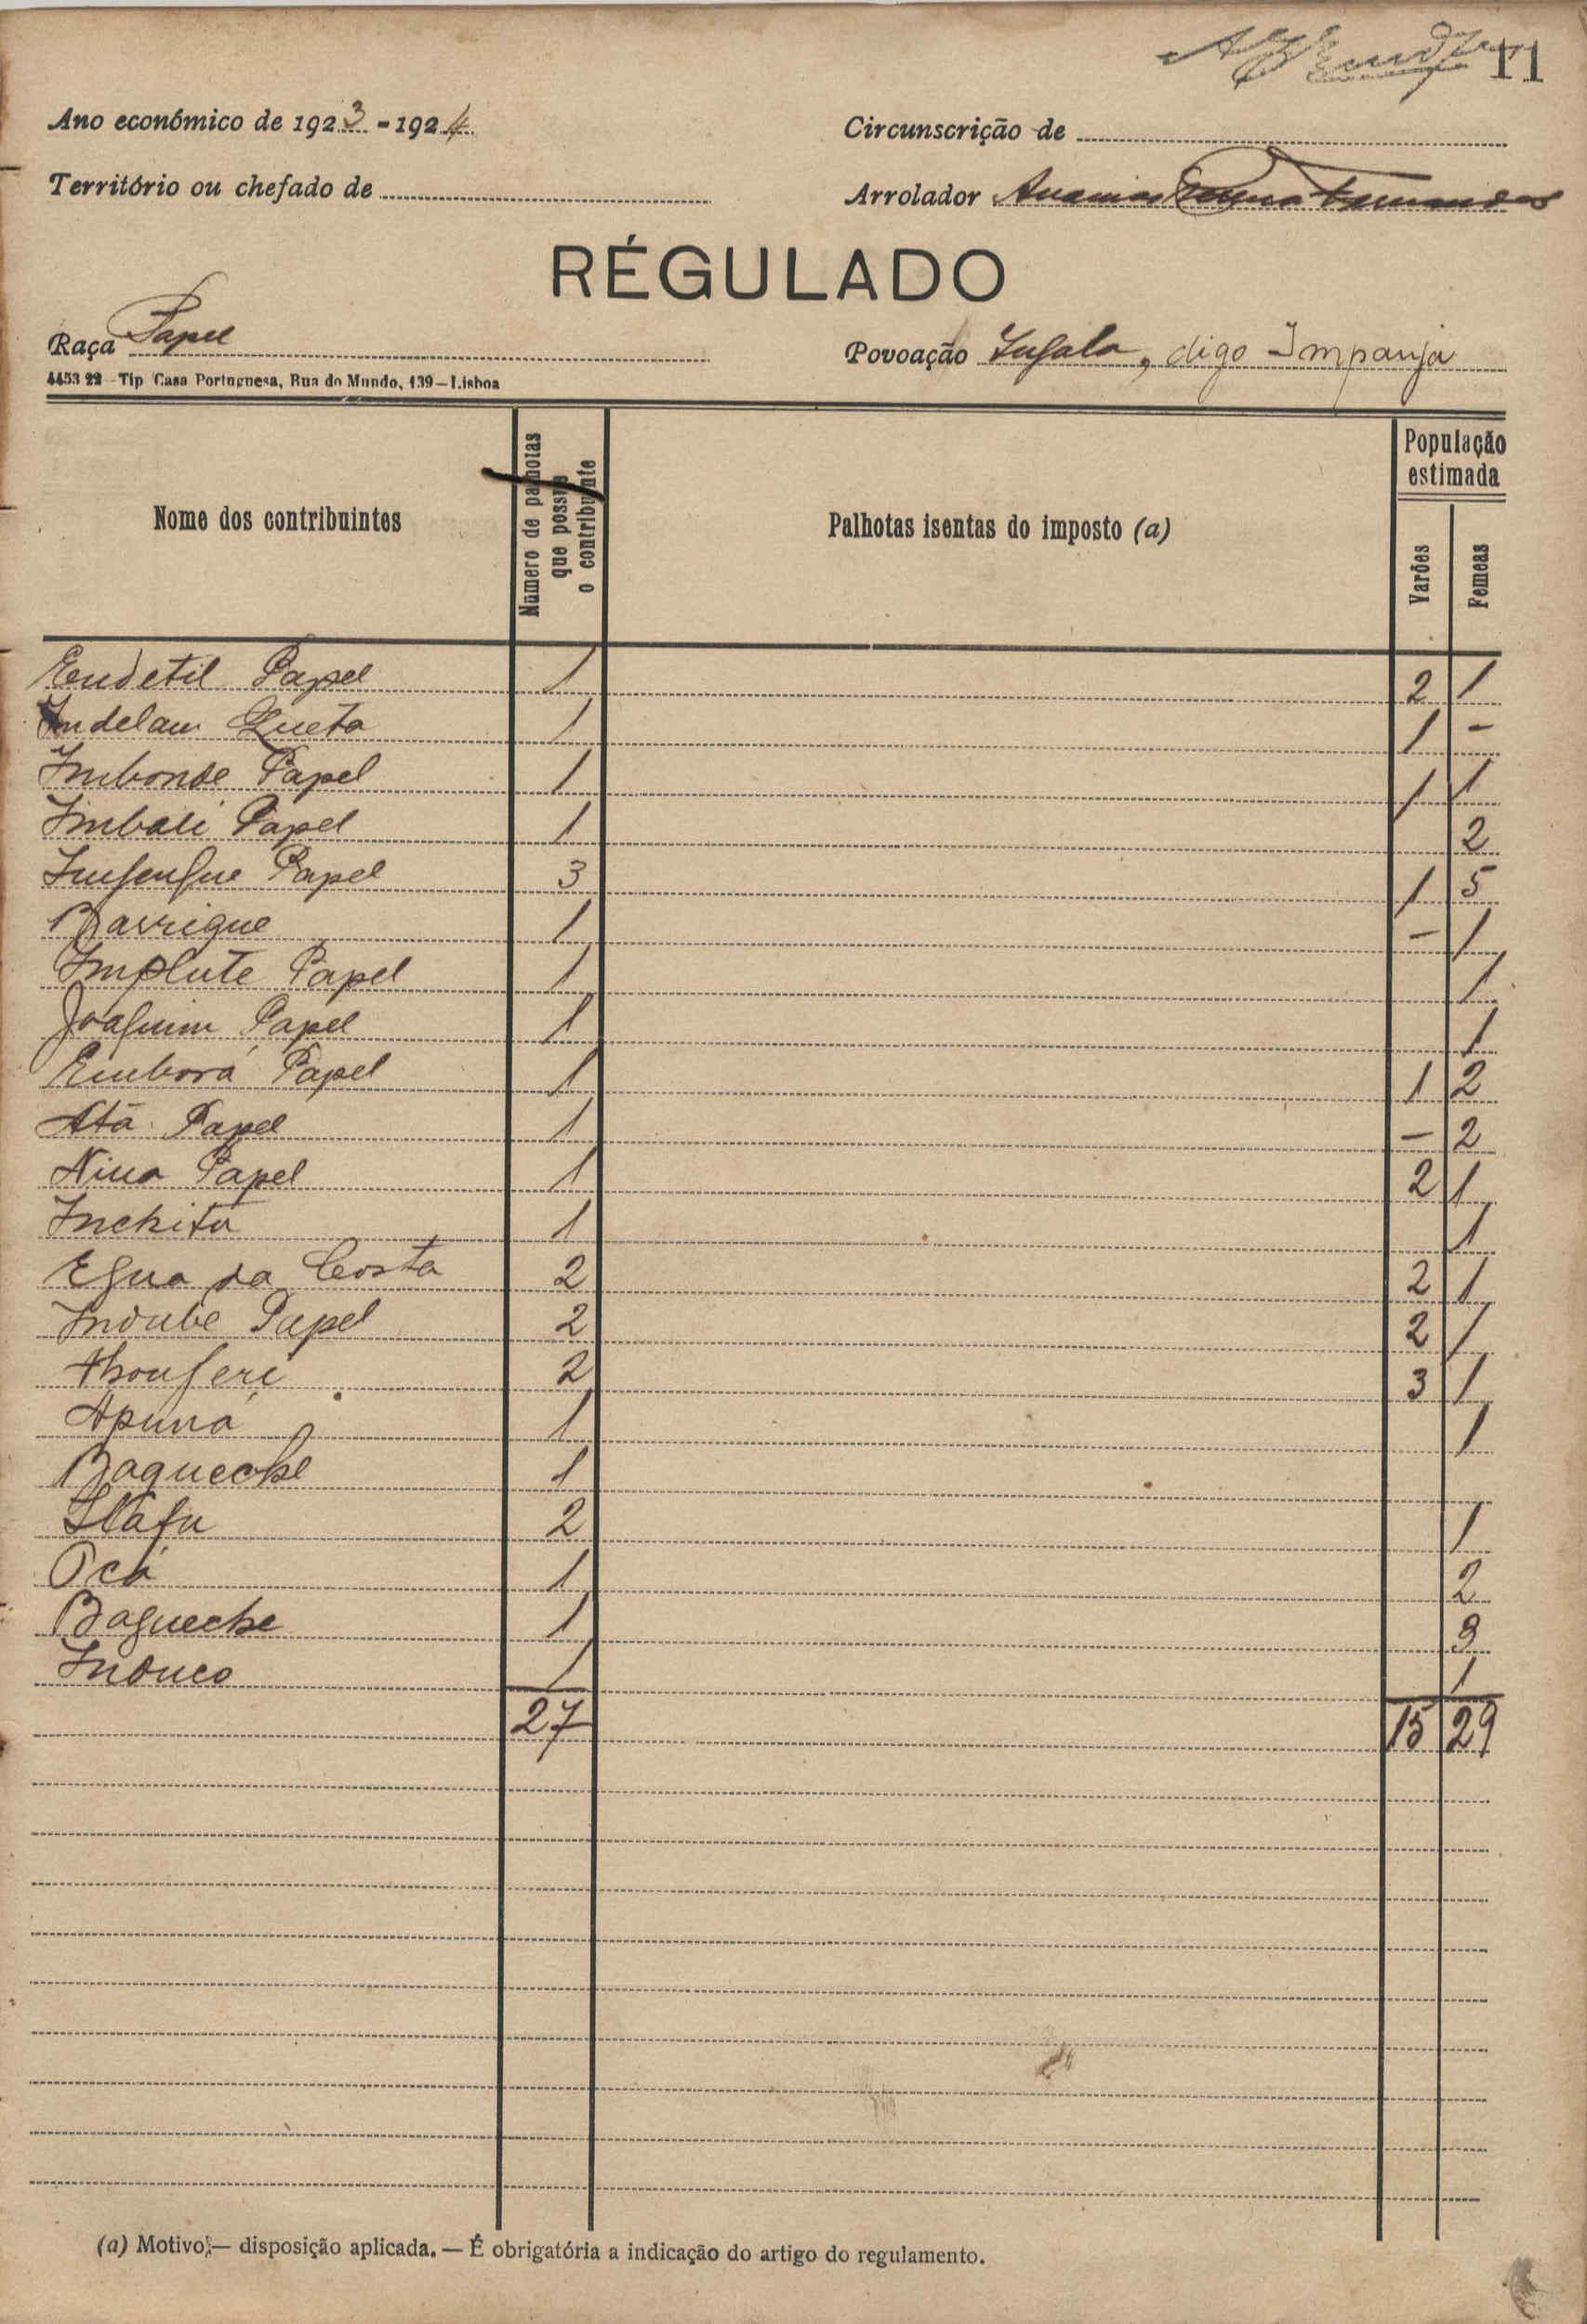 11
Ano económico de 1923-1924
Circunscrição de
Território ou chefado de
Arrolador Fernandes
RÉGULADO
Raça Papel
Povoação digo Impanja
4453 22 - Tip Casa Portuguesa, Rua do Mundo, 139-Lisboa
Nome dos contribuintes
Número de palhotas que possue o contribuinte
Palhotas isentas do imposto (a)
População estimada
Varões
Femeas
Papel 1 2 1
Indelam Queta 1 1 -
Imbonde Papel 1 1 1
Imbali Papel 1 2
Papel 3 1 5
Barrique 1 - 1
Implute Papel 1 1
Joaquim Papel 1 1
Emborá Papel 1 1 2
Atá Papel 1 - 2
Nina Papel 1 2 1
Inchita 1 1
da Costa 2 2 1
Indube Papel 2 2 1
2 3 1
Apuná 1 1
Baqueche 1
2 1
Ocá 1 2
Baqueche 1 3
Induco 1 1
27 15 29
(a) Motivo;— disposição aplicada. — É obrigatória a indicação do artigo do regulamento.